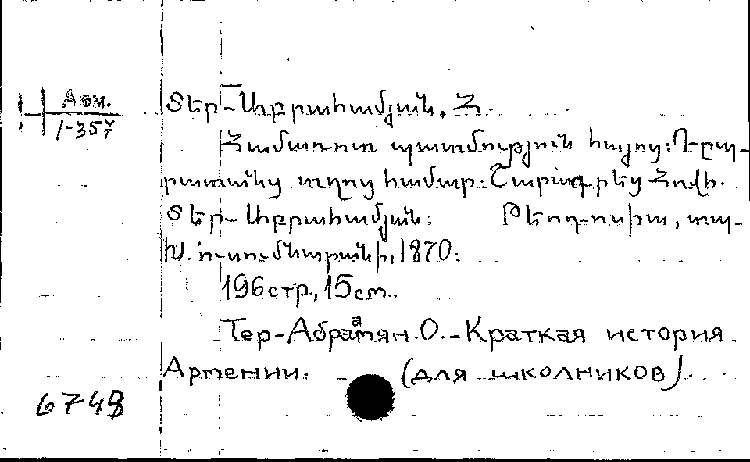 Арм.
1-357
Տեր-Աբրահամյան, Հ.
Համառոտ պատմություն հայոց: Դըպ-
րատանց տղոց համար: Շարագրեց Հովհ.
Տեր-Աբրահամյան: Թեոդոսիա, տպ-
Խ. ուսումնարանի, 1870:
196стр., 15см.
Тер-Абрамян О. - Краткая история
а
Армении. (для школников)
6748